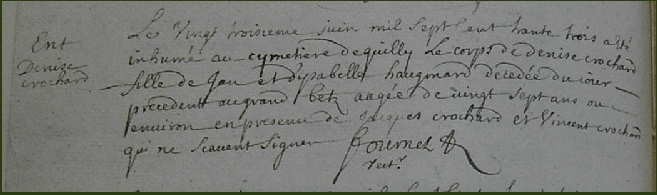 Ent
Denise
crochard
Le vingt troisieme juin mil sept cent trante trois a été
inhumé au cymetiere de quilly Le corps de denise crochard
fille de Jan et d'ysabelle haugmard decedée du iour
precedent au grand betz aagée de vingt sept ans ou
environ en presence de Jacques crochard et Vincent crochard
qui ne scavent signer
rectr